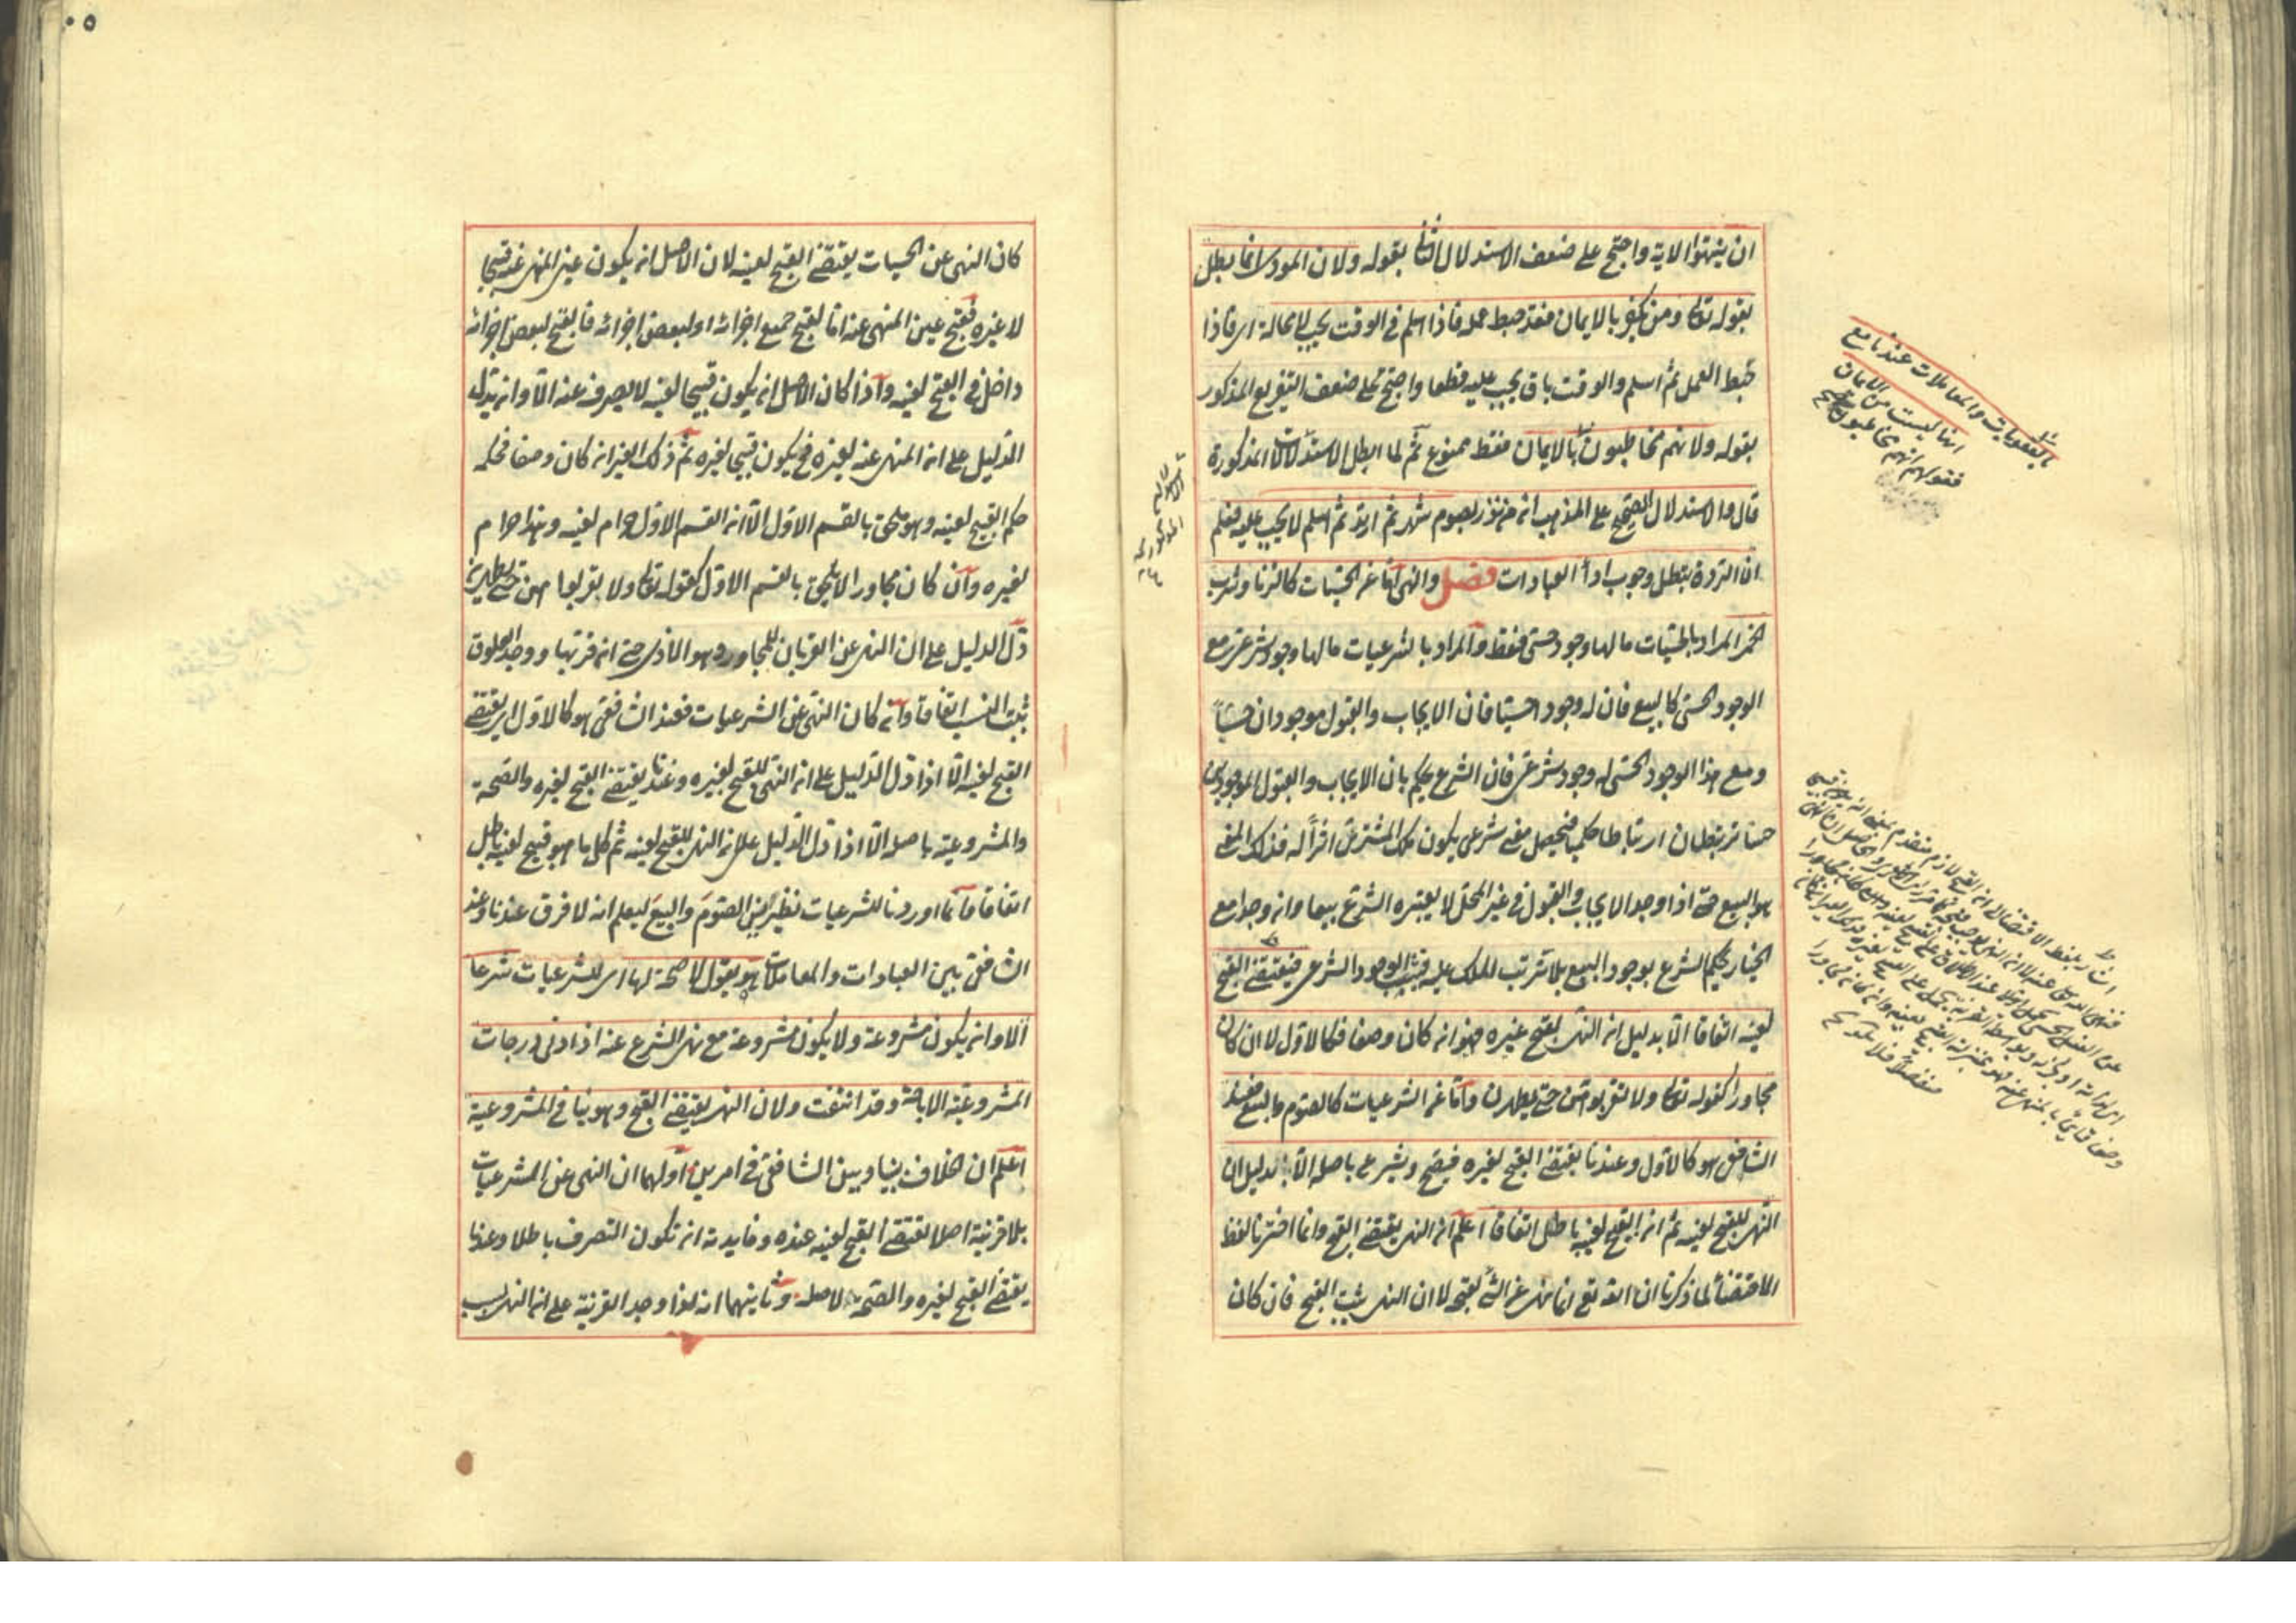 ان ينتهوا الاية واحتج على ضعف الاستدلال الثالث بقوله ولان المؤدى انما بطل
بقوله تعالى ومن يكفر بالايمان فقد حبط عمله فاذا اسلم فى الوقت يجب لا محالة اى فاذا
حبط العمل ثم اسلم والوقت باق يجب عليه قطعا واحتج على ضعف التفريع المذكور
بقوله ولانهم مخاطبون بالايمان فقط ممنوع ثم لما ابطل الاستدلالات المذكورة
قال والاستدلال الصحيح على المذهب انه من نذر بصوم شهر ثم ارتد ثم اسلم لا يجب عليه فعلم
ان الردة تبطل وجوب اداء العبادات فصل والنهى اما عن الحسيات كالزنا وشرب
الخمر المراد بالحسيات ما لها وجود حسى فقط والمراد بالشرعيات ما لها وجود شرعى مع
الوجود الحسى كالبيع فان له وجودا حسيا فان الايجاب والقبول موجودان حسا
ومع هذا الوجود الحسى له وجود شرعى فان الشرع يحكم بان الايجاب والقبول الموجودين
حسا يرتبطان ارتباطا حكميا فيحصل معنى شرعى يكون ملك المشترى اثرا له فذلك المعنى
هو البيع حتى اذا وجد الايجاب والقبول فى غير المحل لا يعتبره الشرع بيعا وان وجدا مع
الخيار يحكم الشرع بوجود البيع بلا ترتب الملك عليه فيثبت الوجود الشرعى فيقتضى القبح
لعينه اتفاقا الا بدليل ان النهى لقبح غيره فهو ان كان وصفا فكالاول لا ان كان
مجاورا كقوله تعالى ولا تقربوهن حتى يطهرن واما عن الشرعيات كالصوم والبيع فعند
الشافعى هو كالاول وعندنا يقتضى القبح لغيره فيصح ويشرع باصله الا بدليل ان
النهى للقبح لعينه ثم ان القبح لعينه باطل اتفاقا اعلم ان النهى يقتضى القبح وانما اخترنا لفظ
الاقتضاء لما ذكرنا ان الله تعالى انما نهى عن الشئ لقبحه لا ان النهى يثبت القبح فان كان
بالعقوبات والمعاملات عندنا مع
انها ليست من الايمان
فقولهم انهم مخاطبون
كان النهى عن الحسيات يقتضى القبح لعينه لان الاصل ان يكون عين المنهى عنه قبيحا
لا غيره فقبح عين المنهى عنه اما لقبح جميع اجزائه او لبعض اجزائه فالقبح لبعض اجزائه
داخل فى القبح لعينه واذا كان الاصل ان يكون قبيحا لعينه لا يصرف عنه الا وان يدل
الدليل على ان المنهى عنه لغيره فح يكون قبيحا لغيره ثم ذلك الغير ان كان وصفا فحكمه
حكم القبيح لعينه وهو ملحق بالقسم الاول الا ان القسم الاول حرام لعينه وهذا حرام
لغيره وان كان مجاورا لا يلحق بالقسم الاول كقوله تعالى ولا تقربوا هن حتى يطهرن
دل الدليل على ان النهى عن القربان للمجاور وهو الاذى حتى ان قربها ووجد العلوق
يثبت النسب اتفاقا وان كان النهى عن الشرعيات فعند الشافعى هو كالاول اى يقتضى
القبح لعينه الا اذا دل الدليل على ان النهى للقبح لغيره وعندنا يقتضى القبح لغيره والصحة
والمشروعية باصله الا اذا دل الدليل على ان النهى للقبح لعينه ثم كل ما هو قبيح لعينه باطل
اتفاقا وانما اوردنا للشرعيات نظيرين الصوم والبيع ليعلم انه لا فرق عندنا وعند
الشافعى بين العبادات والمعاملات هو يقول لا صحة لها اى للشرعيات شرعا
الا وان يكون مشروعة ولا يكون مشروعة مع نهى الشرع عنه اذ ادنى درجات
المشروعية الاباحة وقد انتفت ولان النهى يقتضى القبح وهو ينافى المشروعية
اعلم ان الخلاف بيننا وبين الشافعى فى امرين اولهما ان النهى عن الشرعيات
بلا قرينة اصلا يقتضى القبح لعينه عنده وفايدته ان تكون التصرف باطلا وعندنا
يقتضى القبح لغيره والصحة لاصله وثانيهما انه اذا وجد القرينة على ان النهى لسبب